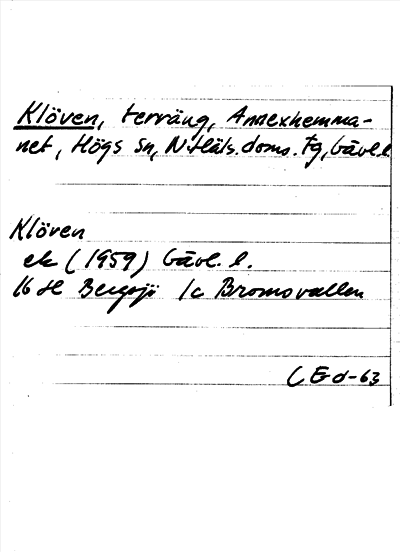 Klöven, terräng, Annexhemma-
net, Högs sn, N. Häls. doms. tg, Gävl. l.
Klöven
ek (1959) Gävl. l.
16 H Bergsjö 1c Bromsvallen
CEd-63